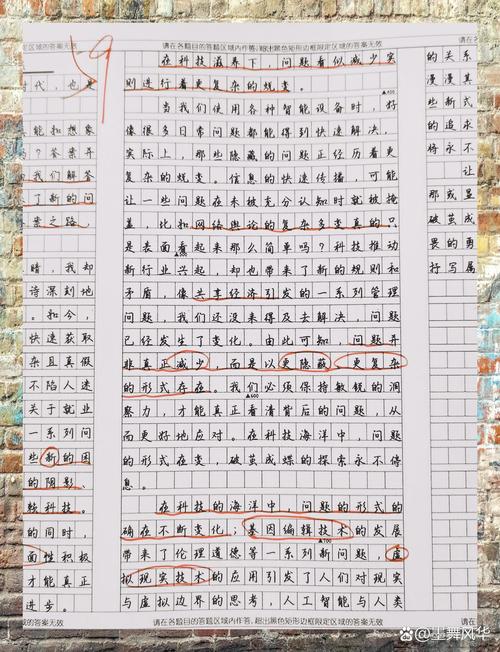 59
定区域的答案无效
请在各题目的答题区域内作答,超出黑色矩形边框限定区域的答案无效
代,也是
能和想象
吗?答案并
我们解答
了新的问
案之路。
暗,我却
诗深刻地
。如今,
快速获取
杂且真假
不陷人迷
关于就业
一系列问
些新的困
的阴影。
赖科技。
的同时,
面性积极
才能真正
进步。
在科技滋养下,问题看似减少实
则进行着更复杂的烧变。
▲400
当我们使用各种智能设备时,好
像很多日常问题都能得到快速解决,
实际上,那些隐藏的问题正经历着更
复杂的烧变。信息的快速传播,可能
让一些问题在未被充分认知时就被掩
盖,比如网络舆论的复杂多变真的只
是表面看起来那么简单吗?科技推动
▲500
新行业兴起,却也带来了新的规则和
矛盾,像共享经济引发的一系列管理
问题,我们还没来得及去解决,问题
已经发生了变化。由此可知,问题并
非真正减少,而是以更隐蔽、更复杂
的形式存在。我们必须保持敏锐的洞
▲600
察力,才能真正看清背后的问题,从
而更好地应对。在科技海洋中,问题
的形式在变,破茧成蝶的探索永不停
息。
在科技的海洋中,问题的形式的
确在不断变化;基因编辑技术的发展
▲700
带来了伦理道德等一系列新问题,虚
拟现实技术的应用引发了人们对现实
与虚拟边界的思考,人工智能与人类
请在各题目的答题区域内作答,超出黑色矩形边框限定区域的答案无效
的关系
漫漫其
些新式
的追求
将永不
让
那或显
破茧成
畏的勇
行写属
请在
定区域的答案无效
百家号/墨舞风华